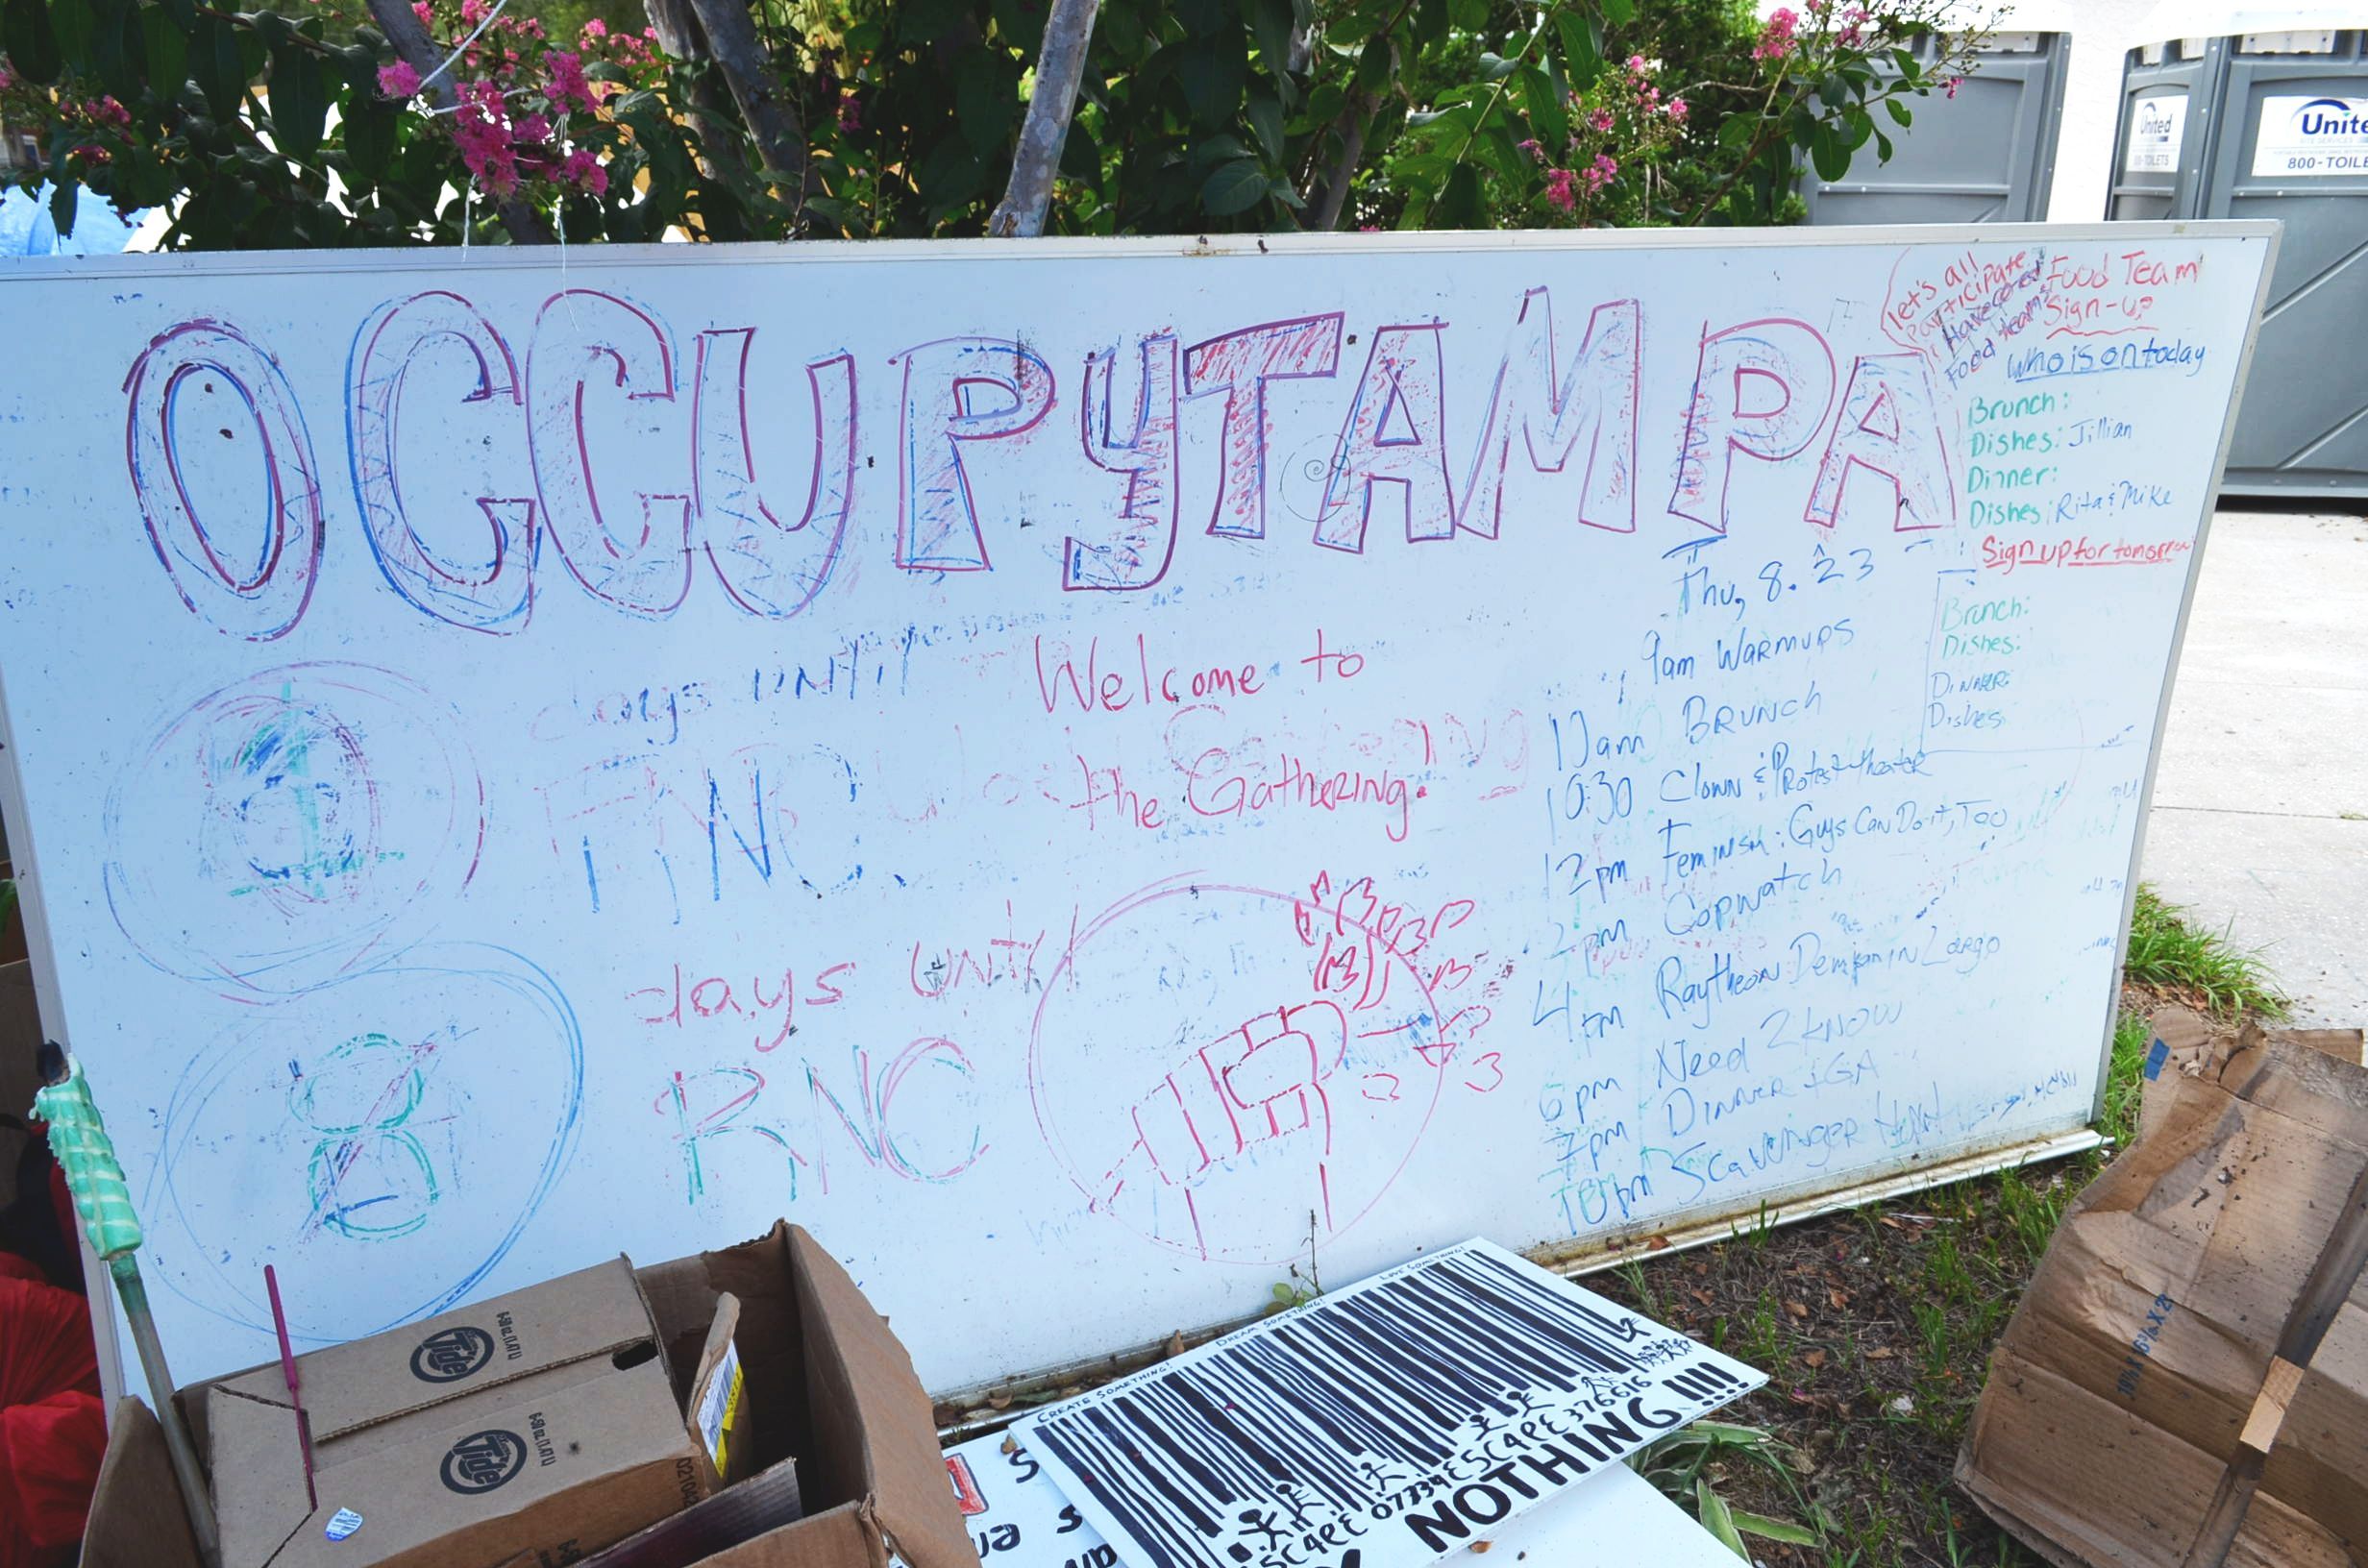 OCCUPY TAMPA
days until
RNC
days until
RNC
Welcome to
the Gathering!
Thu, 8.23
9am WARMUPS
10am BRUNCH
10:30 Clown & Protest theater
12pm Feminism: Guys Can Do it, Too
2pm Copwatch
4pm Raytheon Demo in Largo
6pm Need 2 KNOW
7pm DINNER + GA
10pm Scavenger Hunt
let's all
Participate
Food Team
Sign-up
Who is on today
Brunch:
Dishes: Jillian
Dinner:
Dishes: Rita & Mike
Sign up for tomorrow
Brunch:
Dishes:
DINNER:
Dishes
United
800-TOILETS
Unite
800-TOILE
Tide
Tide
CREATE SOMETHING! DREAM SOMETHING! LOVE SOMETHING!
NOTHING!!!!